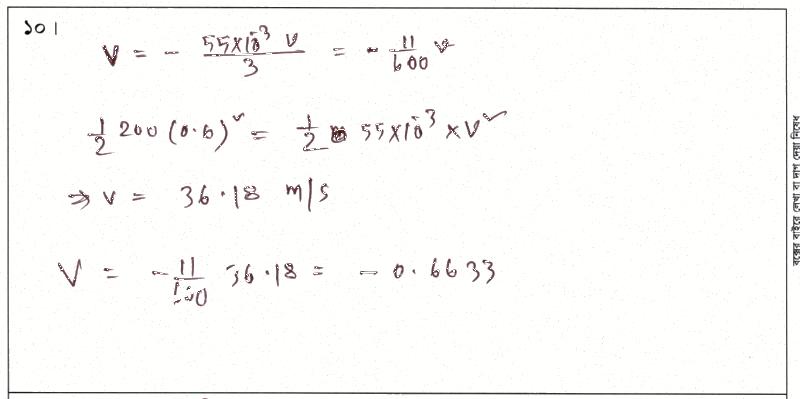 ১০।
V = - 55×10⁻³ v / 3 = - 11/600 v
1/2 200 (0.6)² = 1/2 55×10⁻³ × V²
⇒ v = 36.18 m/s
V = - 11/600 36.18 = - 0.6633
বক্সের বাইরে লেখা বা দাগ দেয়া নিষেধ